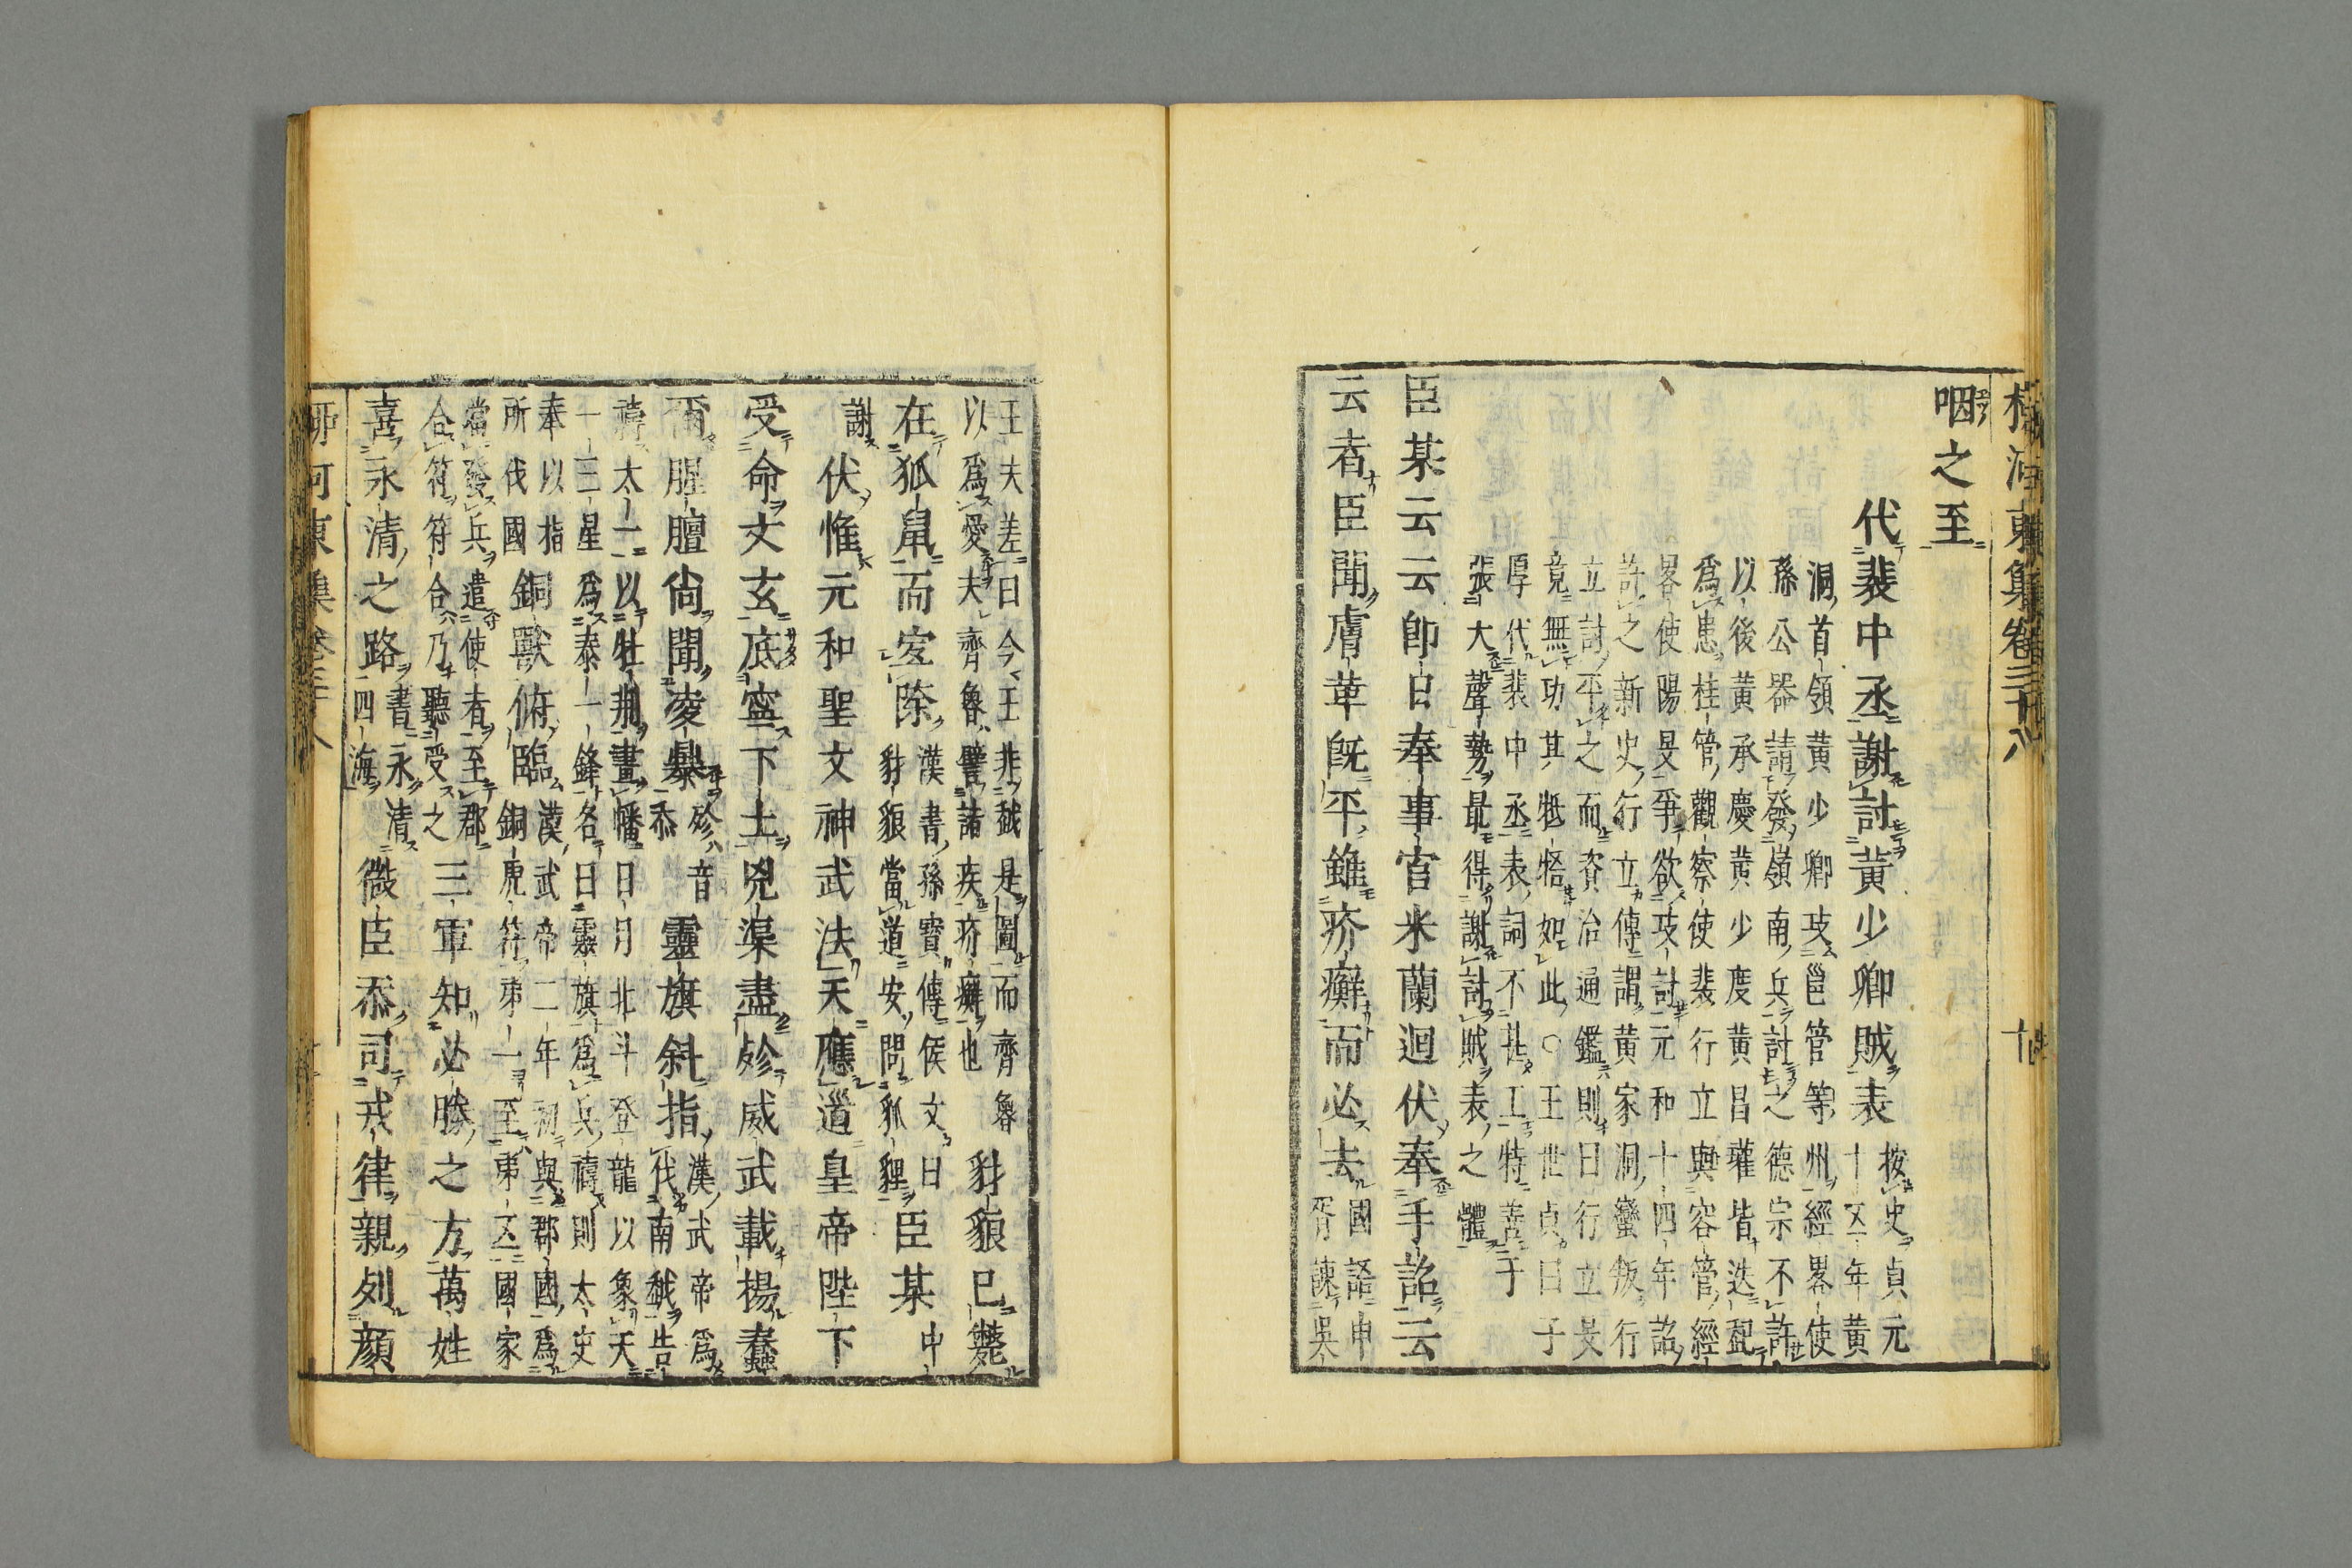 柳河東集卷三十八
咽之至
代裴中丞謝討黃少卿賊表
按史貞元
十年黃
洞首領黃少卿攻邕管等州經畧使
孫公器請發嶺南兵討之德宗不許
以後黃承慶黃少度黃昌瓘皆迭起
爲患桂管觀察使裴行立與容管經
畧使陽旻爭欲攻討元和十四年詔
許之新史行立傳謂黃家洞蠻叛行
立討平之而資治通鑑則曰行立旻
竟無功其牴牾如此○王世貞曰子
厚代裴中丞表詞不甚工特善于
張大聲勢最得謝討賊表之體
臣某云云卽日奉事官米蘭迴伏奉手詔云
云者臣聞膚革旣平雖疥癬而必去
國語申
胥諫吳
王夫差曰今王非越是圖而齊魯
以爲憂夫齊魯譬諸疾疥癬也
豺狼已斃
在狐鼠而宐除
漢書孫寶傳侯文曰
豺狼當道安問狐狸
臣某
中
謝
伏惟元和聖文神武法天應道皇帝陛下
受命上玄底寧下土兇渠盡殄威武載揚蠢
爾腥膻尙聞凌暴
殄音
忝
靈旗斜指
漢武帝爲
伐南越告
禱太一以牡荆畫幡日月北斗登龍以象天
一三星爲泰一鋒名曰靈旗爲兵禱則太史
奉以指
所伐國
銅獸俯臨
漢武帝二年初與郡國爲
銅虎符第一至第五國家
當發兵遣使者至郡
合符符合乃聽受之
三軍知必勝之方萬姓
喜永清之路
書永清
四海
微臣忝司戎律親列顏